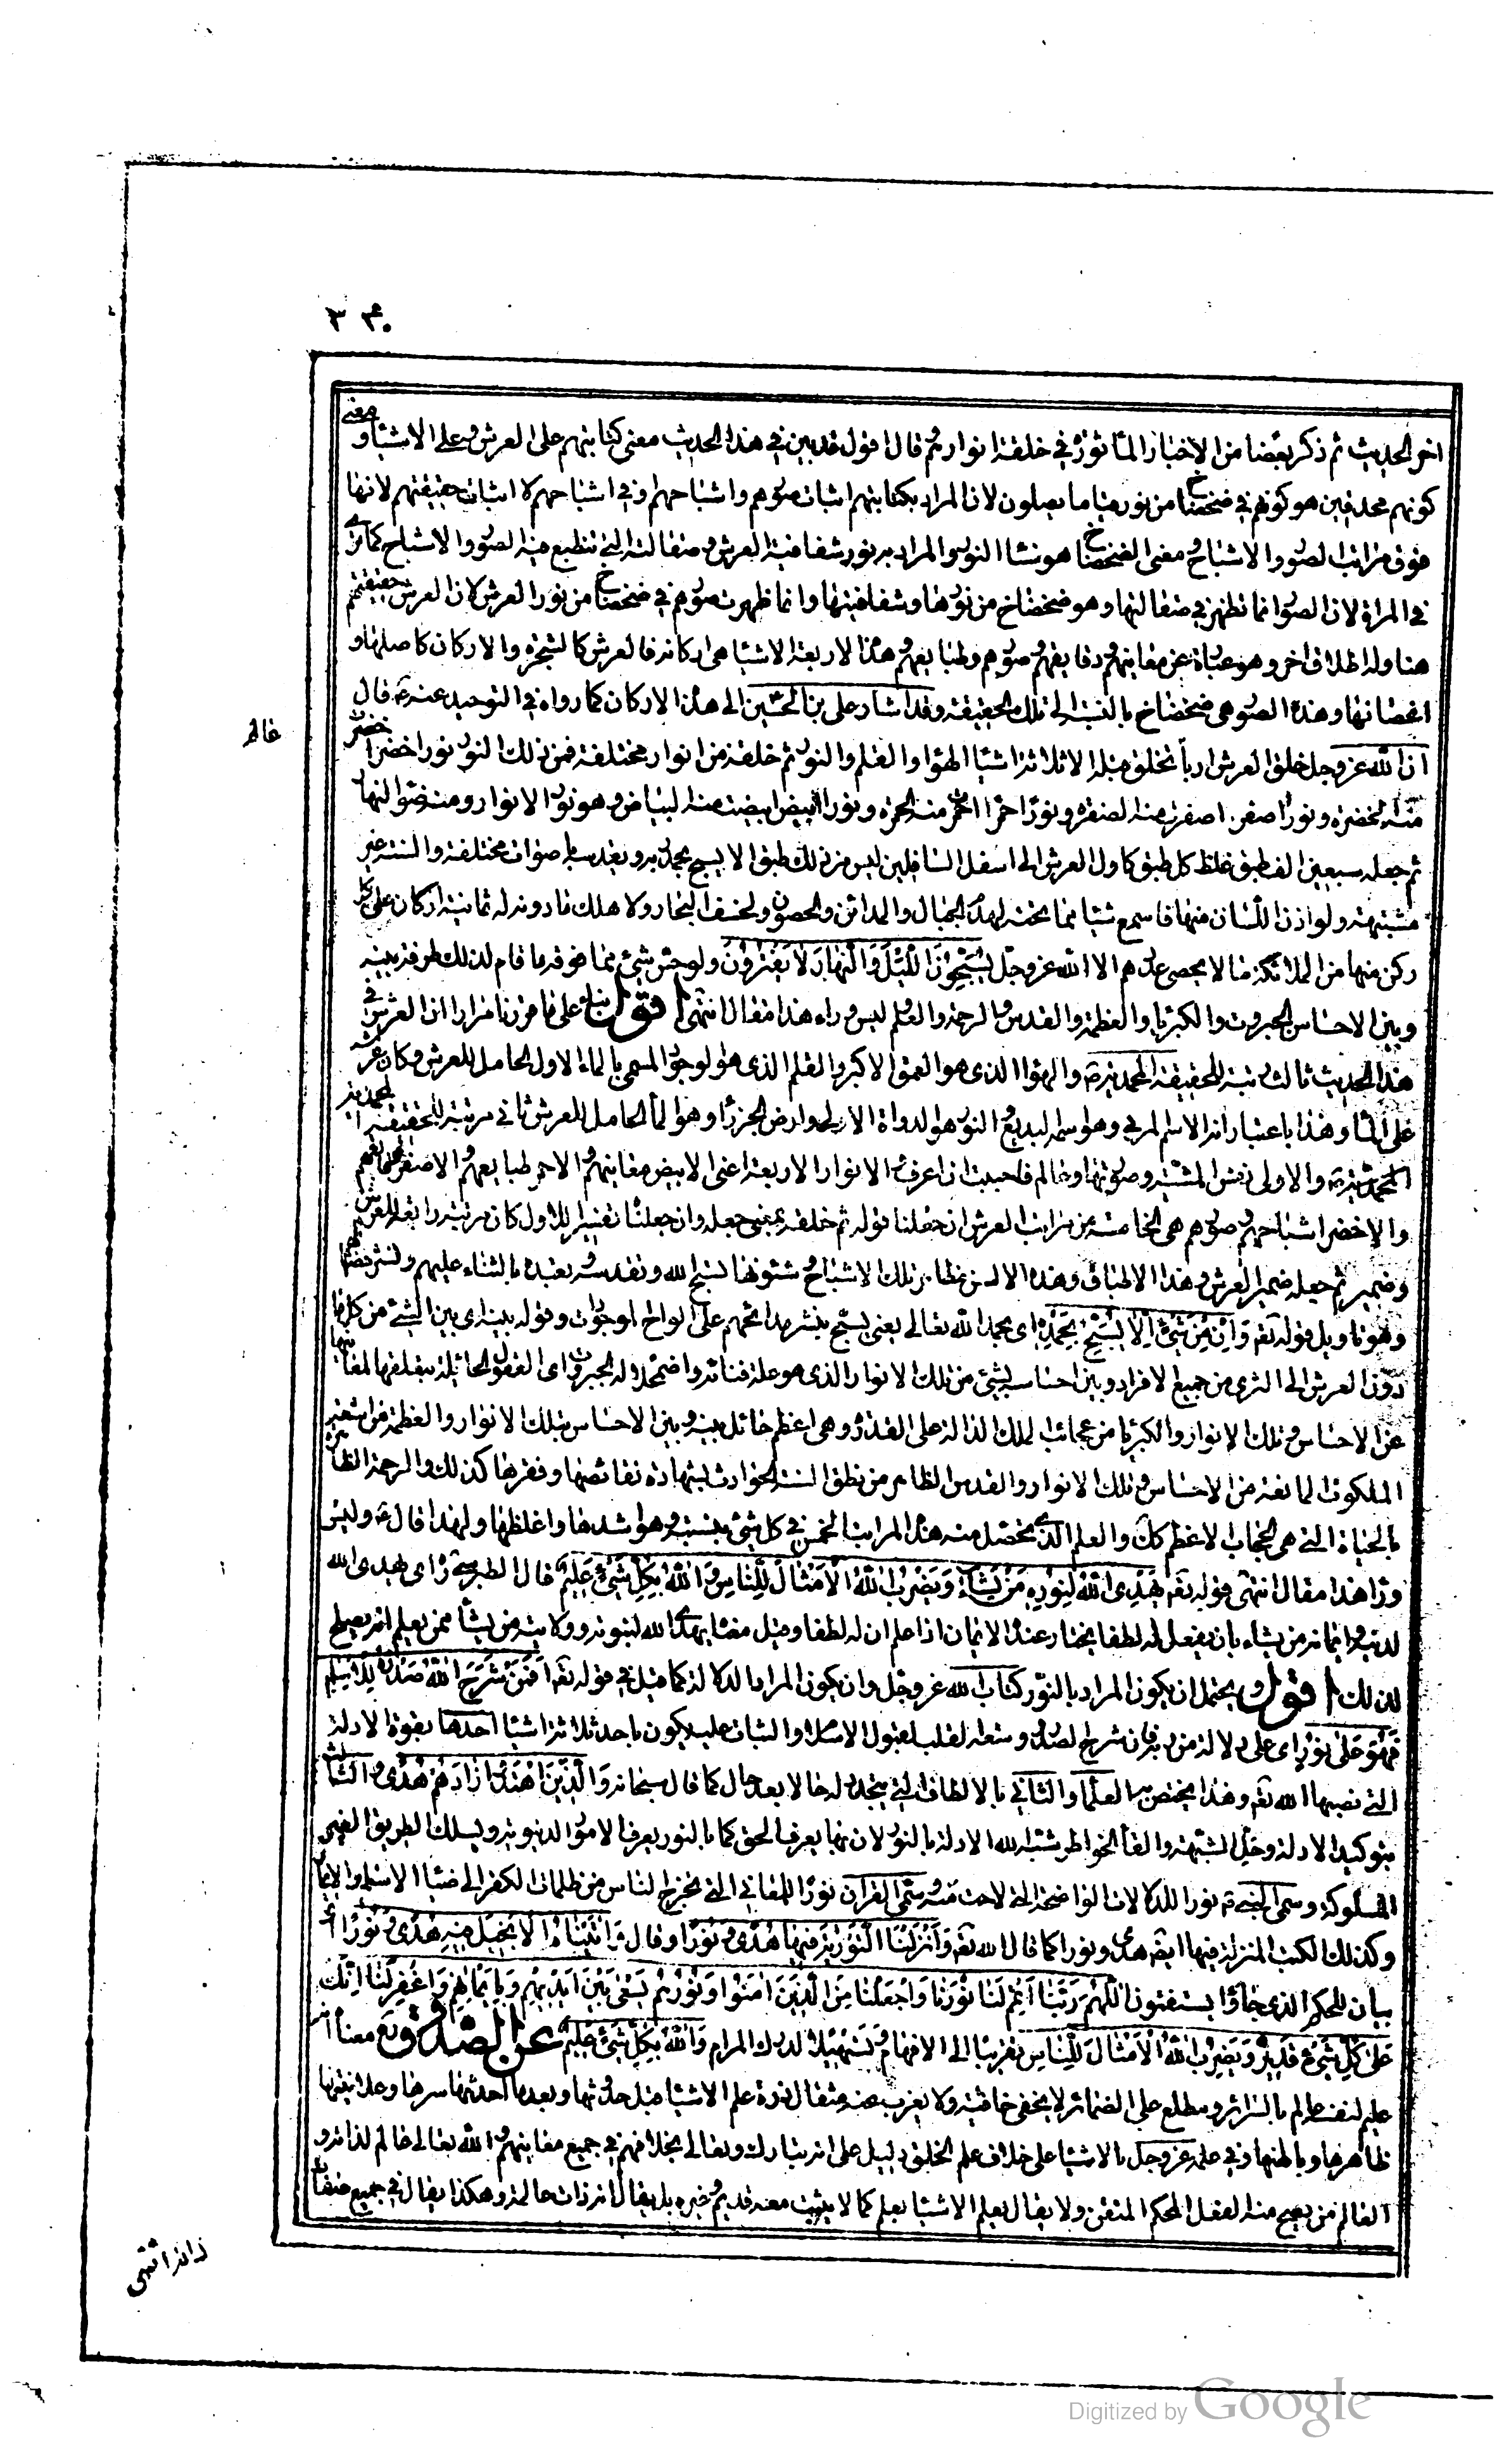 ٣٤٠
اخر الحديث ثم ذكر بعضا من الاخبار الماثورة في خلقة انوارهم قال اقول قد بين في هذا الحديث معنى كتابتهم على العرش وعلى الاشيا ومعنى
كونهم محدقين هو كونهم في ضحضاح من نور لان المراد بكتابتهم اثبات صورهم واشباحهم وفي اشباحهم لا اثبات حقيقتهم لانها
فوق مراتب الصور والاشباح ومعنى الضحضاح هو والمراد به نور شفافية العرش وصقالته التي تنطبع فيه الصور والاشباح كما ترى
في المراة لان الصور انما تظهر في صقالتها وهو ضحضاح من نورها وشفافيتها وانما ظهرت صورهم في ضحضاح من نور العرش لان العرش حقيقتهم
هنا وله اطلاق اخر وهو عبارة عن معانيهم ورقايقهم وصورهم وطبايعهم وهذه الاربعة الاشيا هي اركانه فالعرش كالشجرة والاركان كاصلها و
اغصانها وهذه الصور هي ضحضاح بالنسبة الى تلك الحقيقة وقد اشار علي بن الحسين الى هذه الاركان كما رواه في التوحيد عنه ع قال
ان الله عز وجل خلق العرش ارباعا لم يخلق قبله الا ثلاثة اشيا الهوا والقلم والنور ثم خلقه من انوار مختلفة فمن ذلك النور نور اخضر اخضرت
منه الخضرة ونور اصفر اصفرت منه الصفرة ونور احمر احمرت منه الحمرة ونور ابيض ابيضت منه البياض وهو نور الانوار ومنه ضوء النهار
ثم جعله سبعين الف طبق غلظ كل طبق كاول العرش الى اسفل السافلين ليس من ذلك طبق الا يسبح بحمد ربه ويقدسه باصوات مختلفة والسنة غير
مشتبهة ولو اذن للسان منها فاسمع شيئا مما تحته لهدم الجبال والمدائن والحصون ولخسف البحار ولاهلك ما دونه له ثمانية اركان على كل
ركن منها من الملائكة ما لا يحصي عددهم الا الله عز وجل يسبحون الليل والنهار لا يفترون ولو حس شيء مما فوقه ما قام لذلك طرفة عين بينه
وبين الاحساس الجبروت والكبرياء والعظمة والقدس والرحمة والعلم وليس وراء هذا مقال انتهى اقول بناء على ما قررنا مرارا ان العرش في
هذا الحديث ثالث رتبة للحقيقة المحمدية والهوا الذي هو العمق الاكبر والقلم الذي هو الوجود المسمى بالماء الاول الحامل للعرش وكان عرشه
على الماء وهذا باعتبار انه الاسم المربي وهو اسمه البديع والنور هو الدواة الاولى وارض الجرز او هو الماء الحامل للعرش ثاني مرتبة للحقيقة المحمدية
المحمدية والاولى نفس المشية وصورتها وعالم فاحببت ان اعرف والانوار الاربعة اعني الابيض معانيهم والاحمر طبايعهم والاصفر رقايقهم
والاخضر اشباحهم وصورهم هي الخامسة من مراتب العرش ان جعلنا قوله ثم خلقه بمعنى جعله وان جعلنا تفسيرا للاول كان مرتبة رابعة للعرش
وضمير ثم جعله ضمير العرش وهذه الاطباق وهذه الالسن مظاهر تلك الاشباح وشئونها تسبح الله وتقدسه وتعبده بالثناء عليهم ونشر فضلهم
وهو تاويل قوله تعالى وان من شيء الا يسبح بحمده اي بحمد الله تعالى يعني يسبح بنشر مدائحهم على الواح الموجودات وقوله بينه اي بين الشيء من كل ما
دون العرش الى الثرى من جميع الافراد وبين احساسه بشيء من تلك الانوار الذي هو علة فنائه واضمحلاله الجبروت اي العقول الحائلة
عن الاحساس بتلك الانوار والكبريا من عجائب الملك الدالة على القدرة وهي اعظم حائل بينه وبين الاحساس بتلك الانوار والعظمة من
الملكوت المانعة من الاحساس بتلك الانوار والقدس الظاهر من نطق السنة الحوادث بشهادة نقائصها وفقرها كذلك والرحمة الظاهرة
بالحياة التي هي الحجاب الاعظم كذلك والعلم الذي يحصل منه هذه المراتب الخمس في كل شيء بنسبته وهو اشدها واغلظها ولهذا قال ع وليس
وراء هذا مقال انتهى قوله تعالى يهدي الله لنوره من يشاء ويضرب الله الامثال للناس والله بكل شيء عليم قال الطبرسي ره اي يهدي الله
لدينه وايمانه من يشاء بان يفعل له لطفا يختار عنده الايمان اذا علم ان له لطفا وقيل معناه يهدي الله لنبوته وولايته من يشاء ممن يعلم انه يصلح
لذلك اقول ويحتمل ان يكون المراد بالنور كتاب الله عز وجل وان يكون المراد الدلالة كما قيل في قوله تعالى افمن شرح الله صدره للاسلام
فهو على نور اي على دلالة من ربه فان شرح الصدر وسعة القلب لقبول الاسلام والثبات عليه يكون باحد ثلاثة اشيا احدها بقوة الادلة
التي نصبها الله تعالى وهذا يختص به العلما والثاني بالالطاف التي يتجدد له حالا بعد حال كما قال سبحانه والذين اهتدوا زادهم هدى والثالث
بتوكيد الادلة وحل الشبهة والقاء الخواطر شبه الله الادلة بالنور لان بها يعرف الحق كما بالنور يعرف الامور الدنيوية ويسلك الطريق الغير
المسلوكة وسمي النبي ص نورا للدلالات الواضحة التي لاحت منه وسمي القران نورا للمعاني التي تخرج الناس من ظلمات الكفر الى ضياء الاسلام والايمان
وكذلك الكتب المنزلة فيها ايضا هدى ونور كما قال الله تعالى وانزلنا التورية فيها هدى ونور وقال واتيناه الانجيل فيه هدى ونور اي
بيان للحكم الذي جاؤا يستفتون اللهم ربنا اتمم لنا نورنا واجعلنا من الذين امنوا ونورهم يسعى بين ايديهم وبايمانهم واغفر لنا انك
على كل شيء قدير ويضرب الله الامثال للناس تقريبا الى الافهام وتسهيلا لدرك المرام والله بكل شيء عليم عن الصدوق ره معناه انه
عليم لنفسه عالم بالسرائر ومطلع على الضمائر لا يخفى خافية ولا يعزب عنه مثقال ذرة علم الاشيا قبل حدوثها وبعدما احدثها سرها وعلانيتها
ظاهرها وباطنها وفي علمه عز وجل بالاشيا على خلاف علم الخلق دليل على انه تبارك وتعالى بخلافهم في جميع معانيهم والله تعالى عالم لذاته و
العالم من يصح منه الفعل المحكم المتقن ولا يقال يعلم الاشيا بعلم كما لا يثبت معه قديم غيره بل يقال انه ذات عالمة وهكذا يقال في جميع صفات
عالم
ذاته انتهى
Digitized by Google